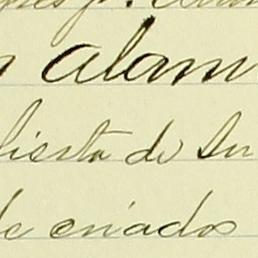 Alam
fiesta de Su
de criados